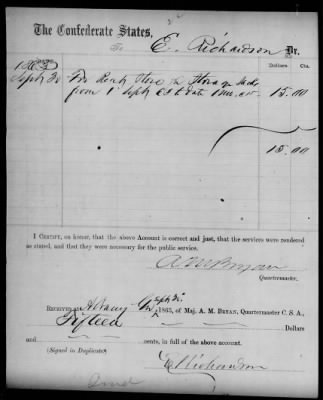 The Confederate States,
To E. Richardson Dr.
Dollars Cts.
1863
Sept 30 For Rent Store for Storage
from 1 Sept to date 1 mo. 15.00
15.00
I Certify, on honor, that the above Account is correct and just, that the services were rendered
as stated, and that they were necessary for the public service.
A M Bryan
Quartermaster.
Received at Albany Ga Sept 30 1863, of Maj. A. M. Bryan, Quartermaster C. S. A.,
Fifteen Dollars
and cents, in full of the above account.
(Signed in Duplicate)
E Richardson